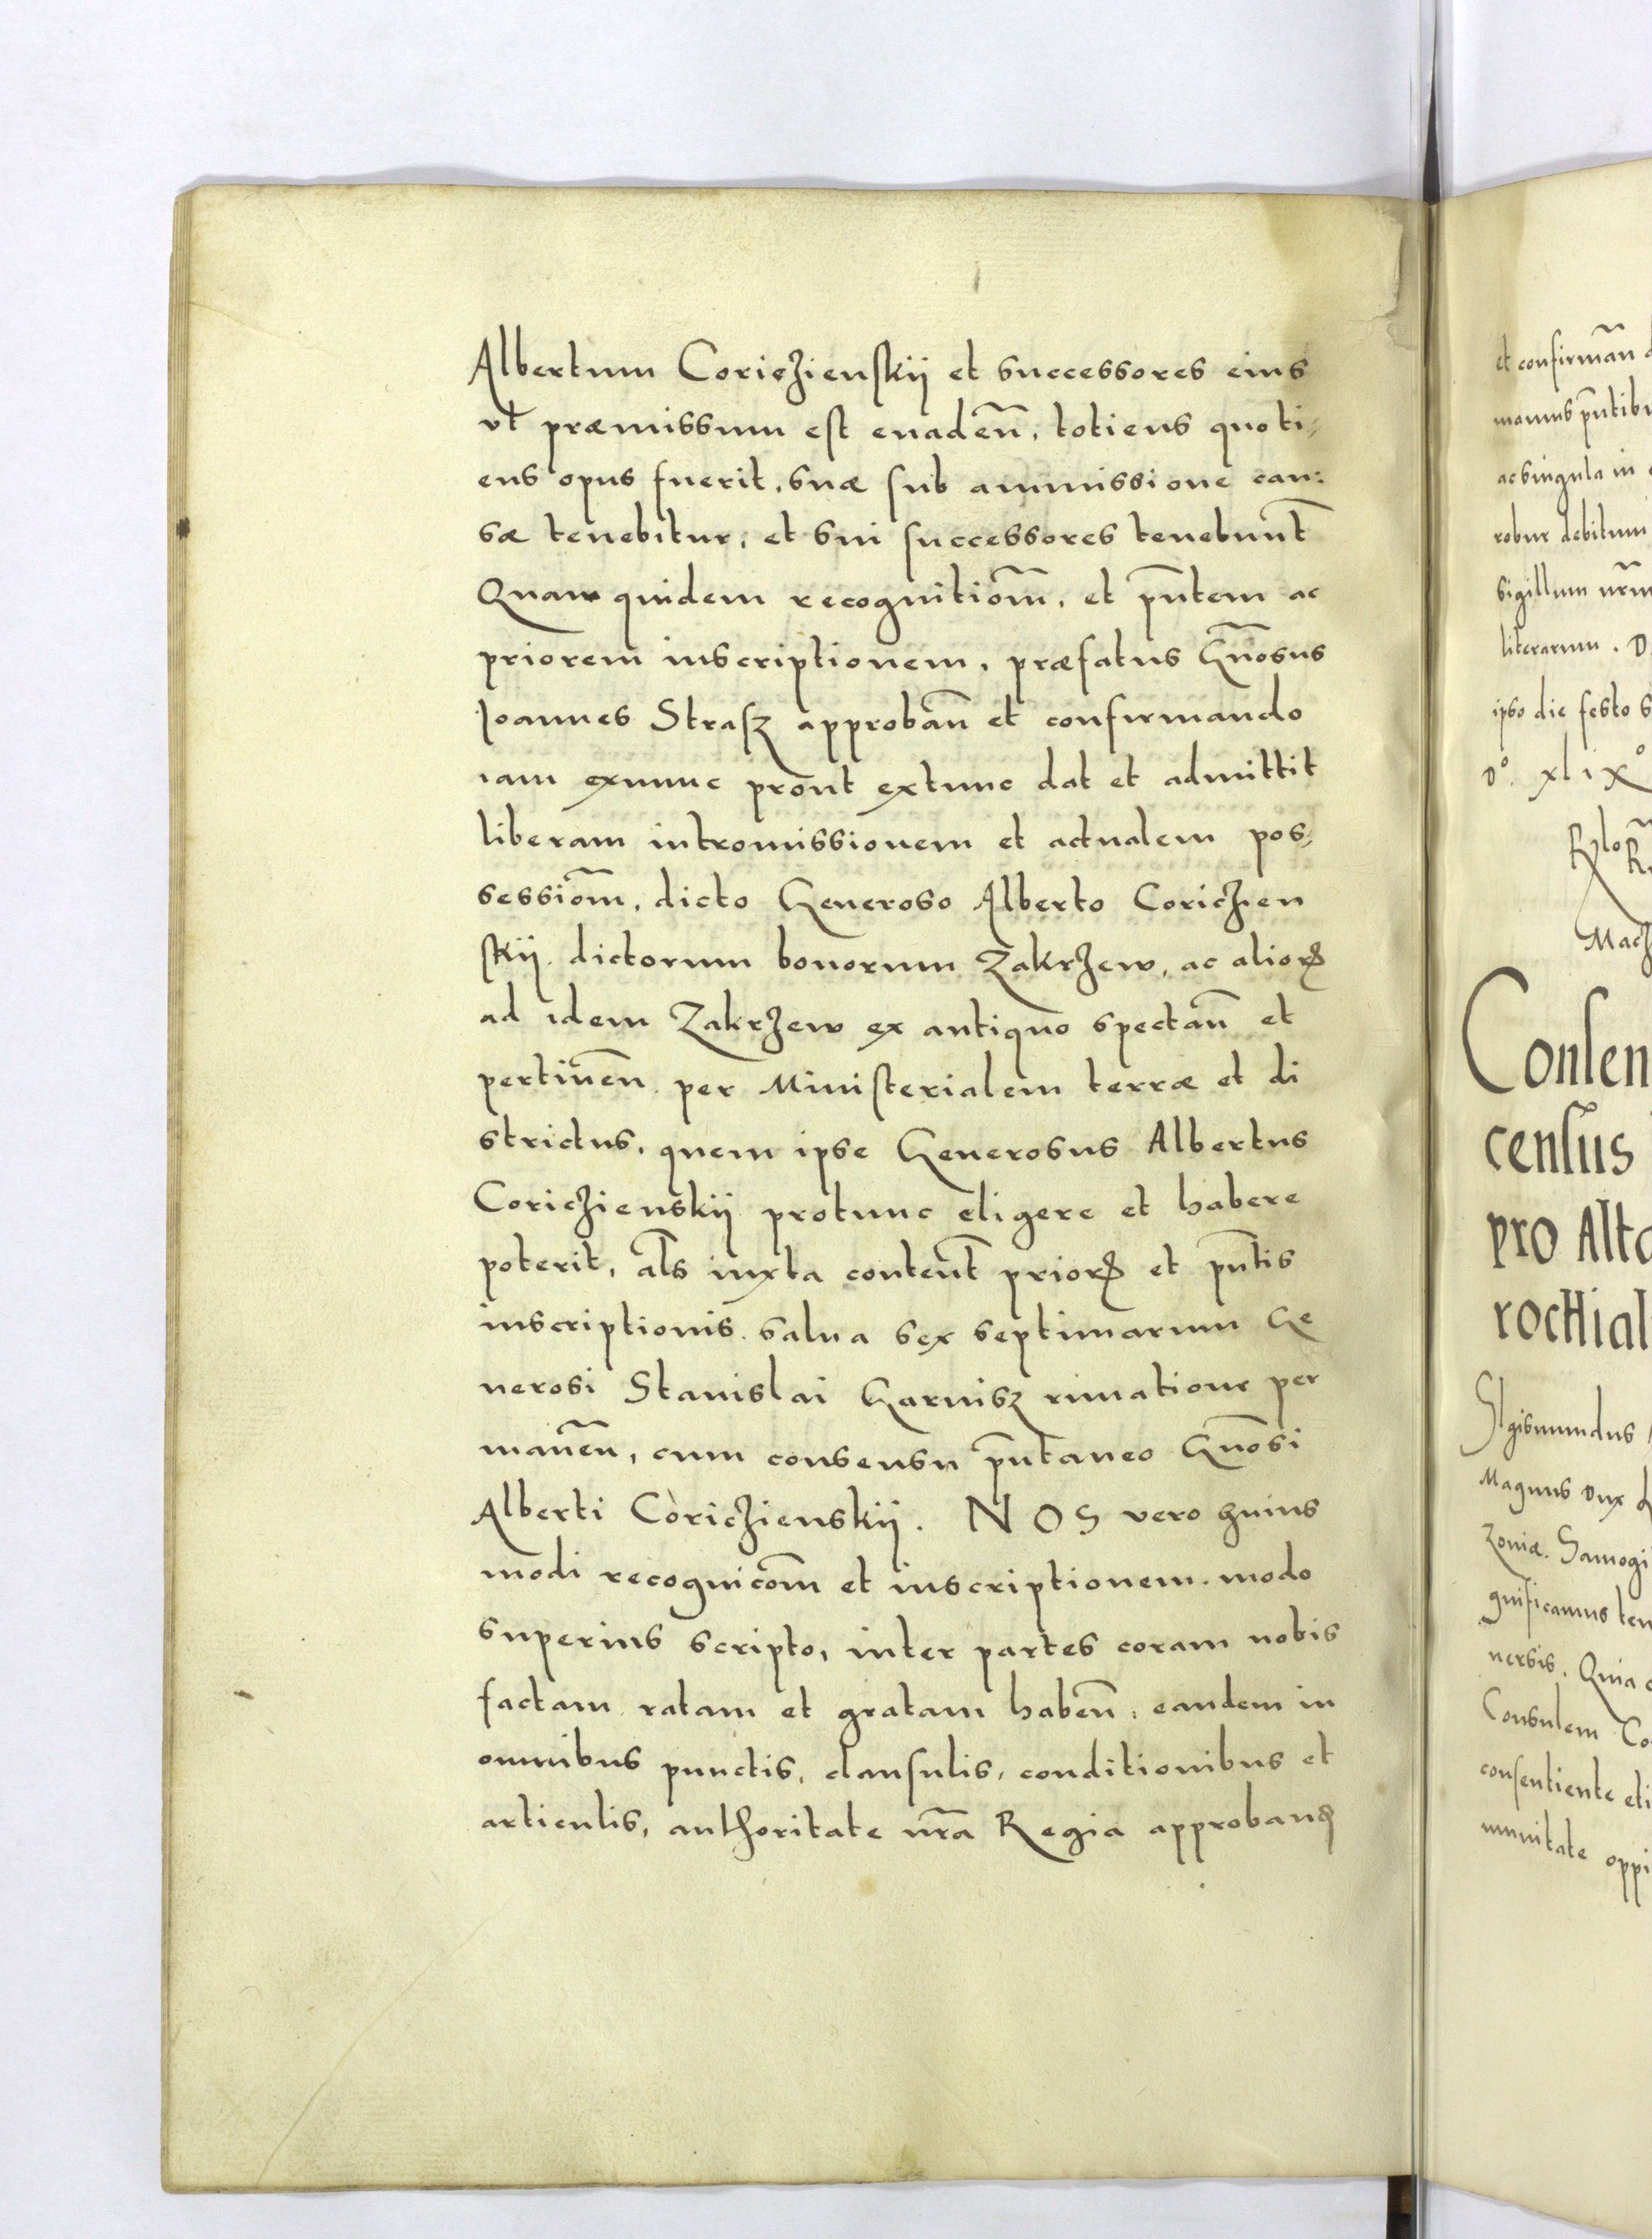 Albertum Coricżienskij et successores eius
vt præmissum est euadeñ, totiens quoti⸗
ens opus fuerit, suæ sub ammissione cau:
sæ tenebitur, et sui successores tenebunt̃
Quam quidem recognitiom̃, et pñtem ac
priorem inscriptionem, præfatus Gñosus
Joannes Strasz approbañ et confirmando
iam exnunc prout extunc dat et admittit
liberam intromissionem et actualem pos⸗
sessiom̃, dicto Generoso Alberto Coricżien
skij dictorum bonorum Zakrżew, ac aliorꝝ
ad idem Zakrżew ex antiquo spectañ et
pertineñ per Ministerialem terræ et di
strictus, quem ipse Generosus Albertus
Coricżienskij protunc eligere et habere
poterit, als̃ iuxta content̃ priorꝝ et pñtis
inscriptionis. salua sex septimarum Ge
nerosi Stanislai Garnisz rimatione per
maneñ, cum consensu pñtaneo Gñosi
Alberti Coricżienskij. NOS vero huius
modi recognicom̃ et inscriptionem. modo
superius scripto, inter partes coram nobis
factam ratam et gratam habeñ, eandem in
omnibus punctis, clausulis, conditionibus et
articulis, authoritate nr̃a Regia approbanꝫ
et confirmañ
mamus pñtibu
ac singula in
robur debitum
sigillum nr̃m
literarum. D
ipso die festo S
dº. xlixº
Macż
Consen
census
pro Alta
rochial
SIgismundus
Magnus dux L
zoniæ. Samogi
gnificamus ten
uersis. Quia
Consulem Co
consentiente eti
munitate oppi